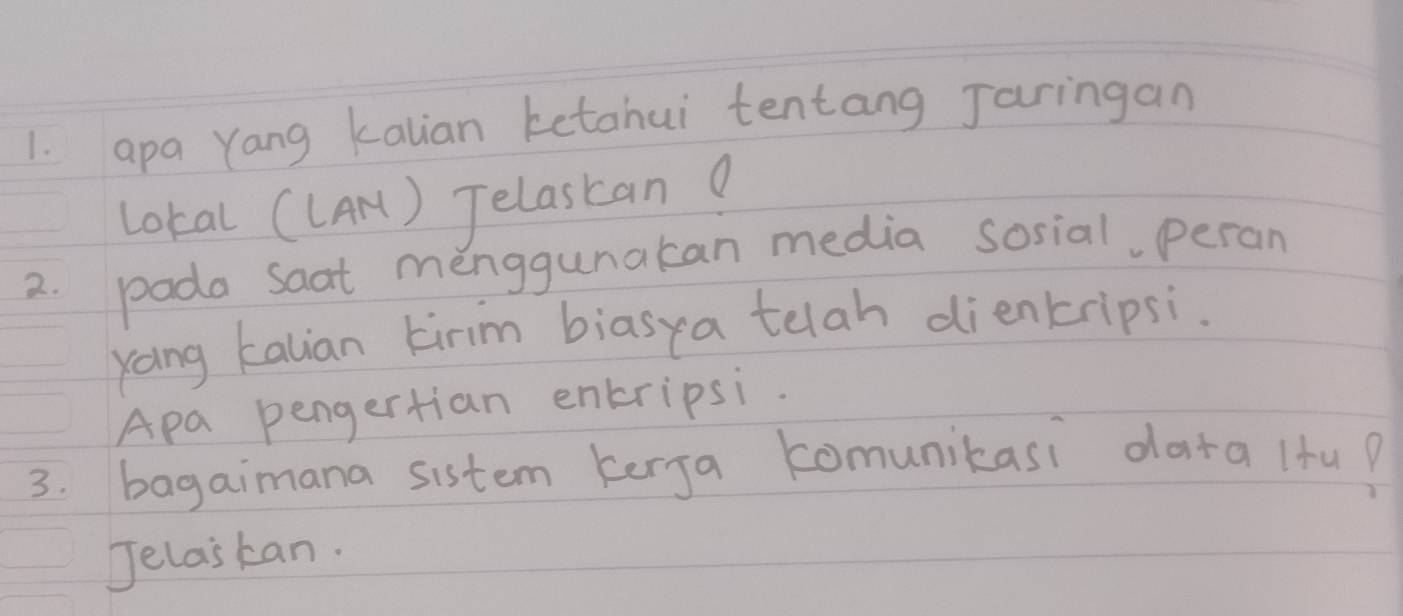 1. apa yang kalian ketahui tentang Jaringan
Lokal (LAN) Jelaskan ?
2. pada saat menggunakan media sosial, peran
yang kalian kirim biasya telah dienkripsi.
Apa pengertian enkripsi.
3. bagaimana sistem kerja komunikasi data itu?
Jelaskan.